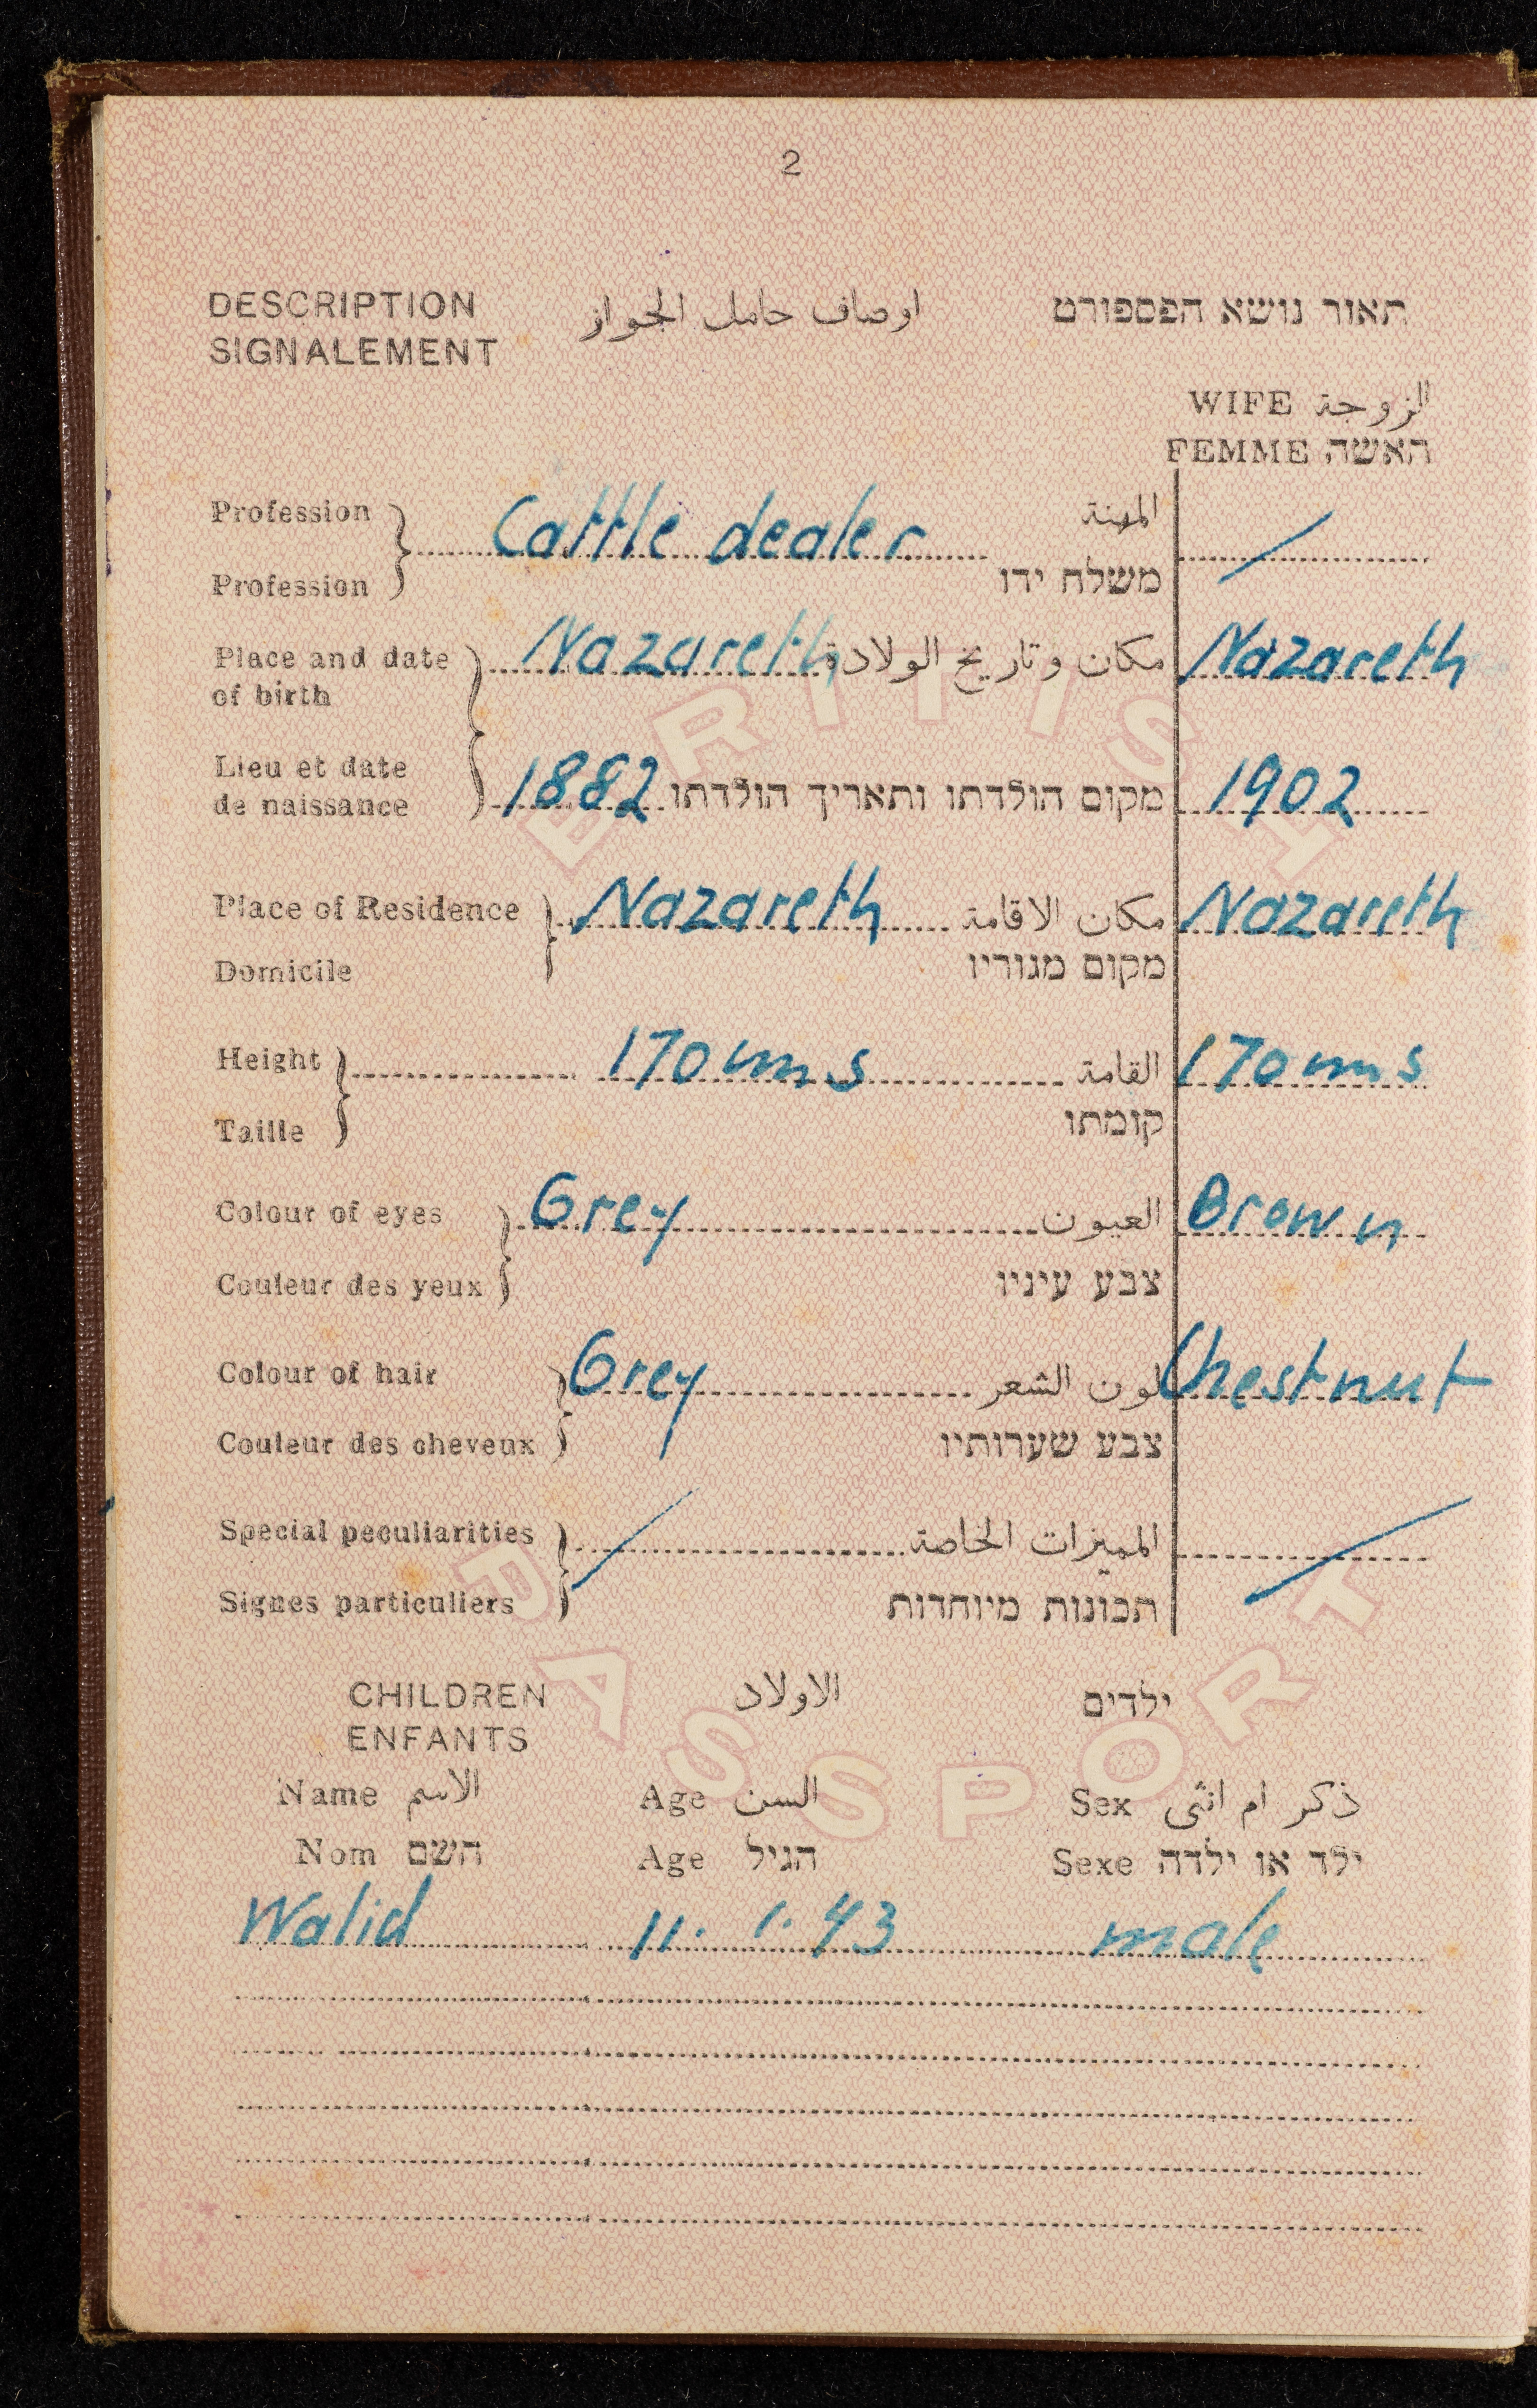 2
DESCRIPTION اوصاف حامل الجواز תאור נושא הפספורט
SIGNALEMENT
WIFE الزوجة
FEMME האשה
Profession Cattle dealer المهنة
Profession משלח ידו
Place and date Nazareth مكان وتاريخ الولادة Nazareth
of birth
Lieu et date 1882 מקום הולדתו ותאריך הולדתו 1902
de naissance
Place of Residence Nazareth مكان الاقامة Nazareth
Domicile מקום מגוריו
Height 170 cms القامة 170 cms
Taille קומתו
Colour of eyes Grey العيون Brown
Couleur des yeux צבע עיניו
Colour of hair Grey لون الشعر Chestnut
Couleur des cheveux צבע שערותיו
Special peculiarities المميزات الخاصة
Signes particuliers תכונות מיוחדות
CHILDREN الاولاد ילדים
ENFANTS
Name الاسم Age السن Sex ذكر ام انثى
Nom השם Age הגיל Sexe ילד או ילדה
Walid 11. 1. 43 male
BRITISH
PASSPORT